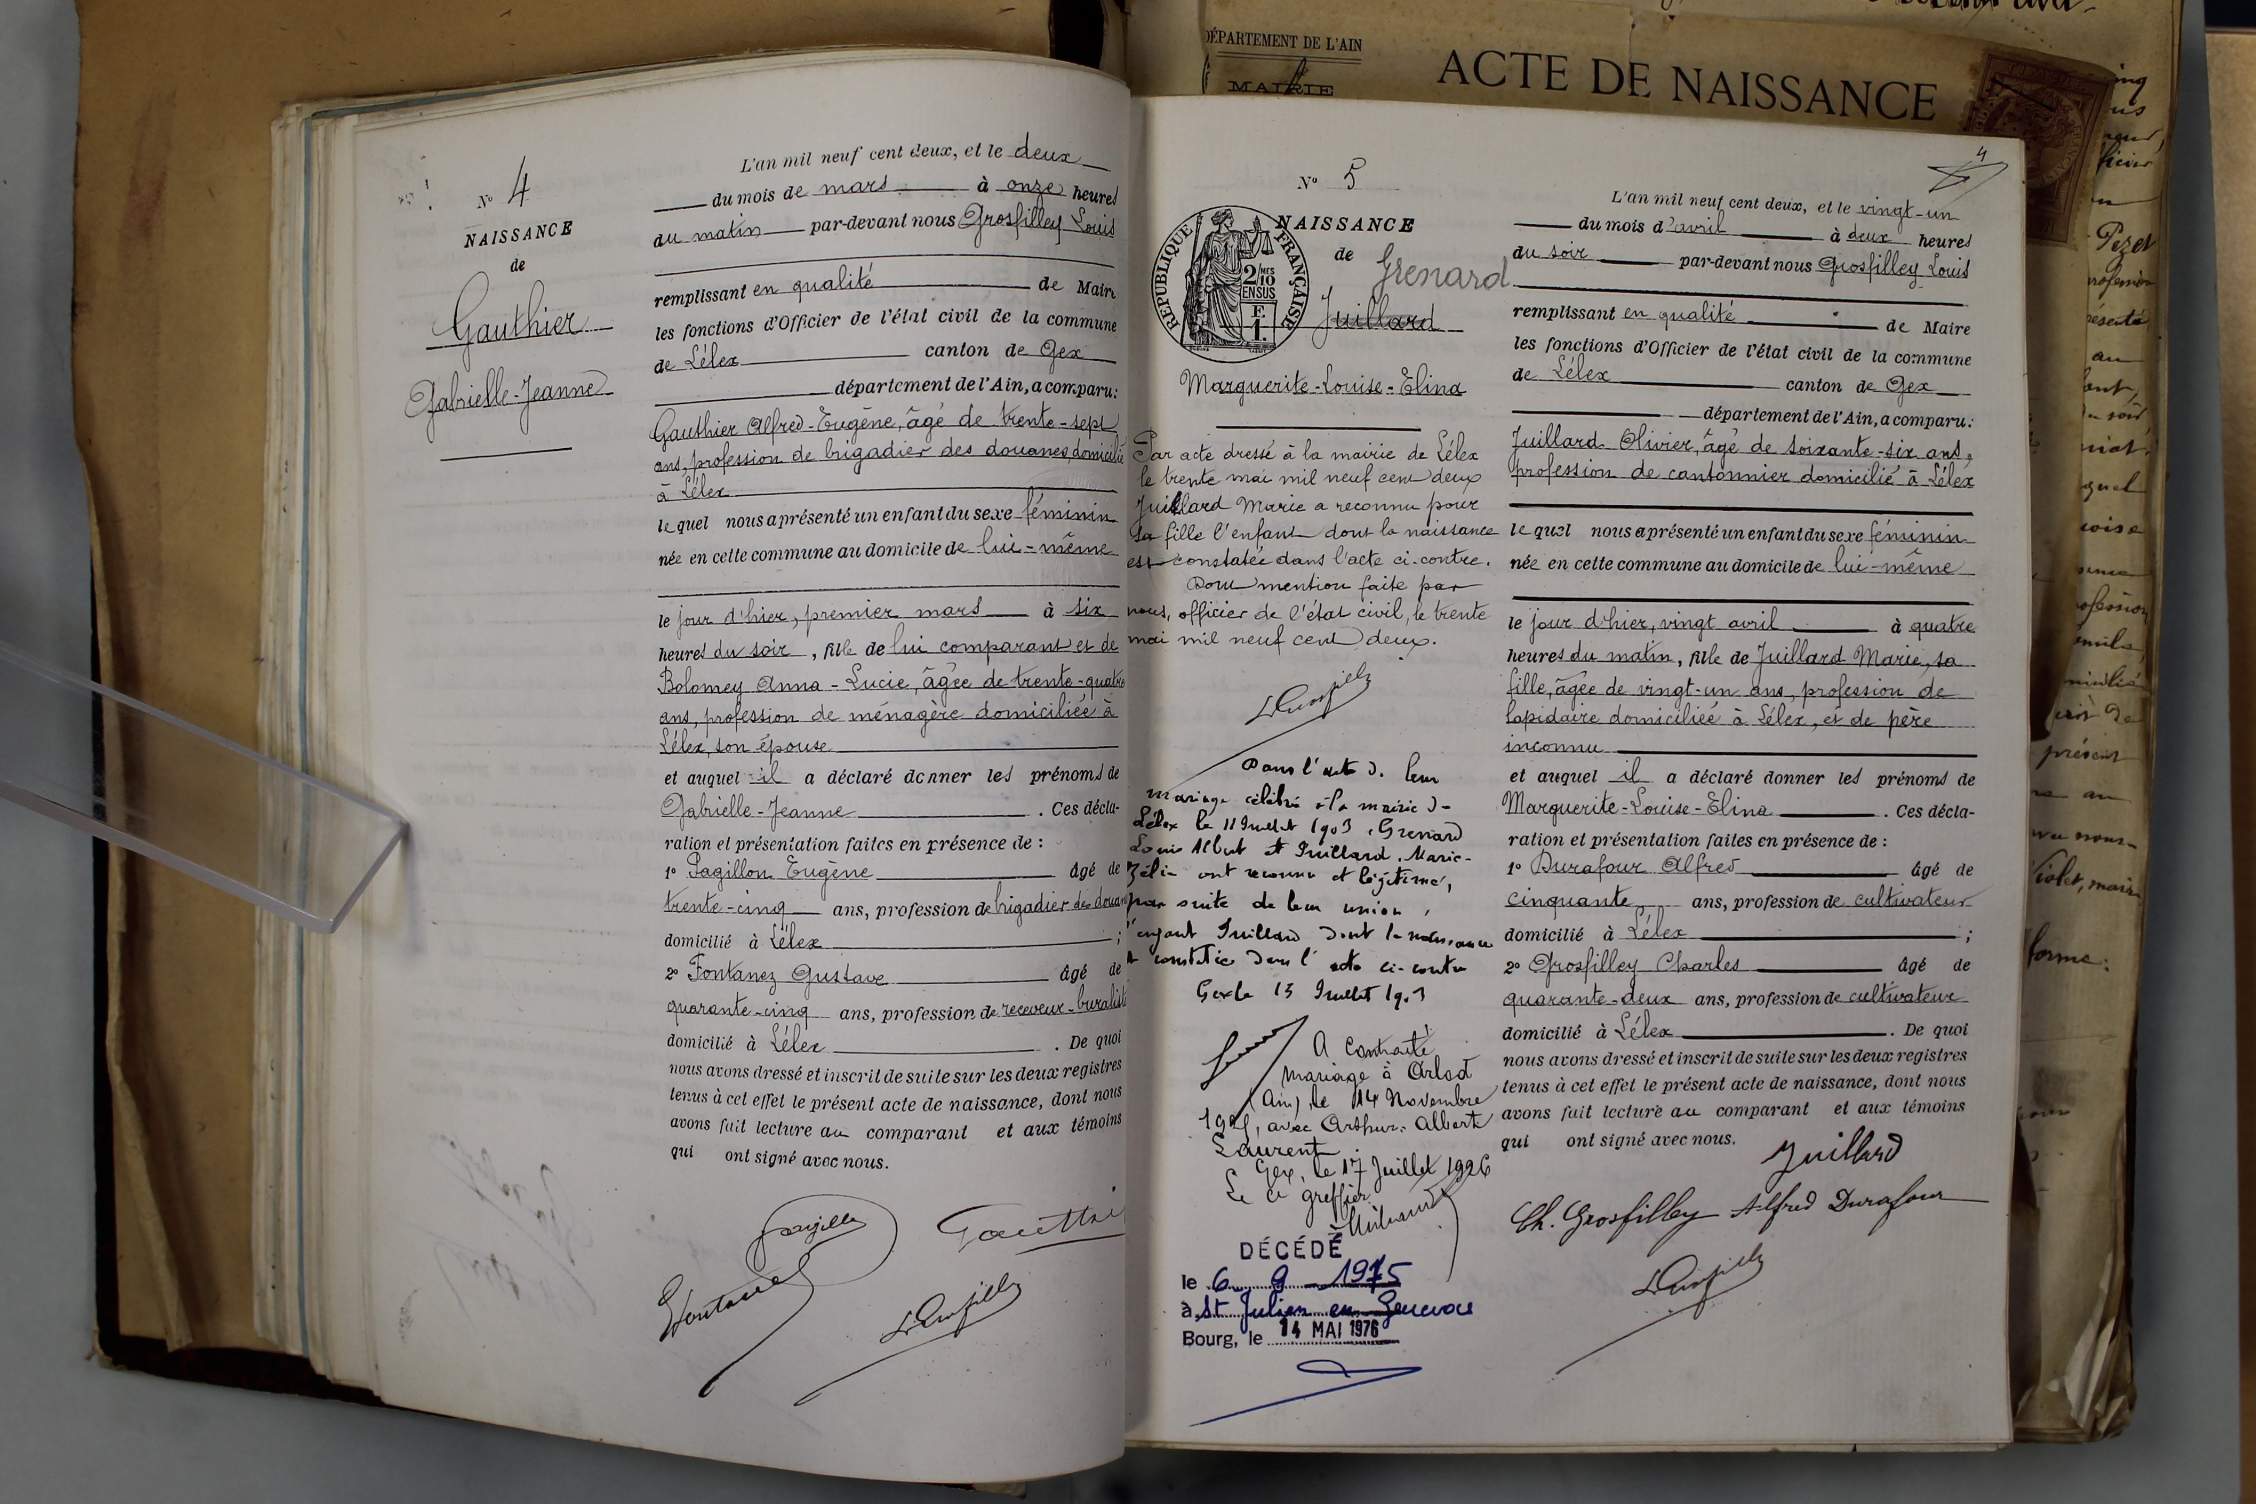 L'an mil neuf cent deux, et le deux
du mois de mars à onze heures
du matin par-devant nous Grosfilley Louis
remplissant en qualité de Maire
les fonctions d'Officier de l'état civil de la commune
de Lélex canton de Gex
département de l'Ain, a comparu:
Gauthier Alfred-Eugène, âgé de trente-sept
ans, profession de brigadier des douanes, domicilié
à Lélex
lequel nous a présenté un enfant du sexe féminin
née en cette commune au domicile de lui-même
le jour d'hier, premier mars à six
heures du soir, fille de lui comparant et de
Bolomey Anna-Lucie, âgée de trente-quatre
ans, profession de ménagère domiciliée à
Lélex, son épouse
et auquel il a déclaré donner les prénoms de
Gabrielle-Jeanne. Ces décla-
ration et présentation faites en présence de :
1° Pagillon Eugène âgé de
trente-cinq ans, profession de brigadier des douanes
domicilié à Lélex ;
2° Fontanez Gustave âgé de
quarante-cinq ans, profession de receveur-buraliste
domicilié à Lélex. De quoi
nous avons dressé et inscrit de suite sur les deux registres
tenus à cet effet le présent acte de naissance, dont nous
avons fait lecture au comparant et aux témoins
qui ont signé avec nous.
N° 4
NAISSANCE
de
Gauthier
Gabrielle-Jeanne
DÉPARTEMENT DE L'AIN
MAIRIE
ACTE DE NAISSANCE
4
N° 5
NAISSANCE
de Grenard
Juillard
Marguerite-Louise-Elina
RÉPUBLIQUE FRANÇAISE
2/10
EN SUS
F.
1.
Par acte dressé à la mairie de Lélex
le trente mai mil neuf cent deux
Juillard Marie a reconnu pour
sa fille l'enfant dont la naissance
est constatée dans l'acte ci-contre.
Dont mention faite par
nous, officier de l'état civil, le trente
mai mil neuf cent deux.
Dans l'acte de leur
mariage célébré à la mairie de
Lélex le 11 Juillet 1903, Grenard
Louis Albert et Juillard Marie-
Zélie ont reconnu et légitimé,
par suite de leur union,
l'enfant Juillard dont la naissance
est constatée dans l'acte ci-contre
Gex le 15 Juillet 1903
A contracté
mariage à Arlod
(Ain), le 14 Novembre
1925, avec Arthur-Albert
Laurent
Gex, le 17 Juillet 1926
Le greffier
DÉCÉDÉ
le 6 9 1975
à St Julien en Genevois
Bourg, le 14 MAI 1976
L'an mil neuf cent deux, et le vingt-un
du mois d'avril à deux heures
du soir par-devant nous Grosfilley Louis
remplissant en qualité de Maire
les fonctions d'Officier de l'état civil de la commune
de Lélex canton de Gex
département de l'Ain, a comparu:
Juillard Olivier, âgé de soixante-six ans,
profession de cantonnier domicilié à Lélex
lequel nous a présenté un enfant du sexe féminin
née en cette commune au domicile de lui-même
le jour d'hier, vingt avril à quatre
heures du matin, fille de Juillard Marie, sa
fille, âgée de vingt-un ans, profession de
lapidaire domiciliée à Lélex, et de père
inconnu
et auquel il a déclaré donner les prénoms de
Marguerite-Louise-Elina. Ces décla-
ration et présentation faites en présence de :
1° Durafour Alfred âgé de
cinquante ans, profession de cultivateur
domicilié à Lélex ;
2° Grosfilley Charles âgé de
quarante-deux ans, profession de cultivateur
domicilié à Lélex. De quoi
nous avons dressé et inscrit de suite sur les deux registres
tenus à cet effet le présent acte de naissance, dont nous
avons fait lecture au comparant et aux témoins
qui ont signé avec nous.
Juillard
Ch. Grosfilley Alfred Durafour